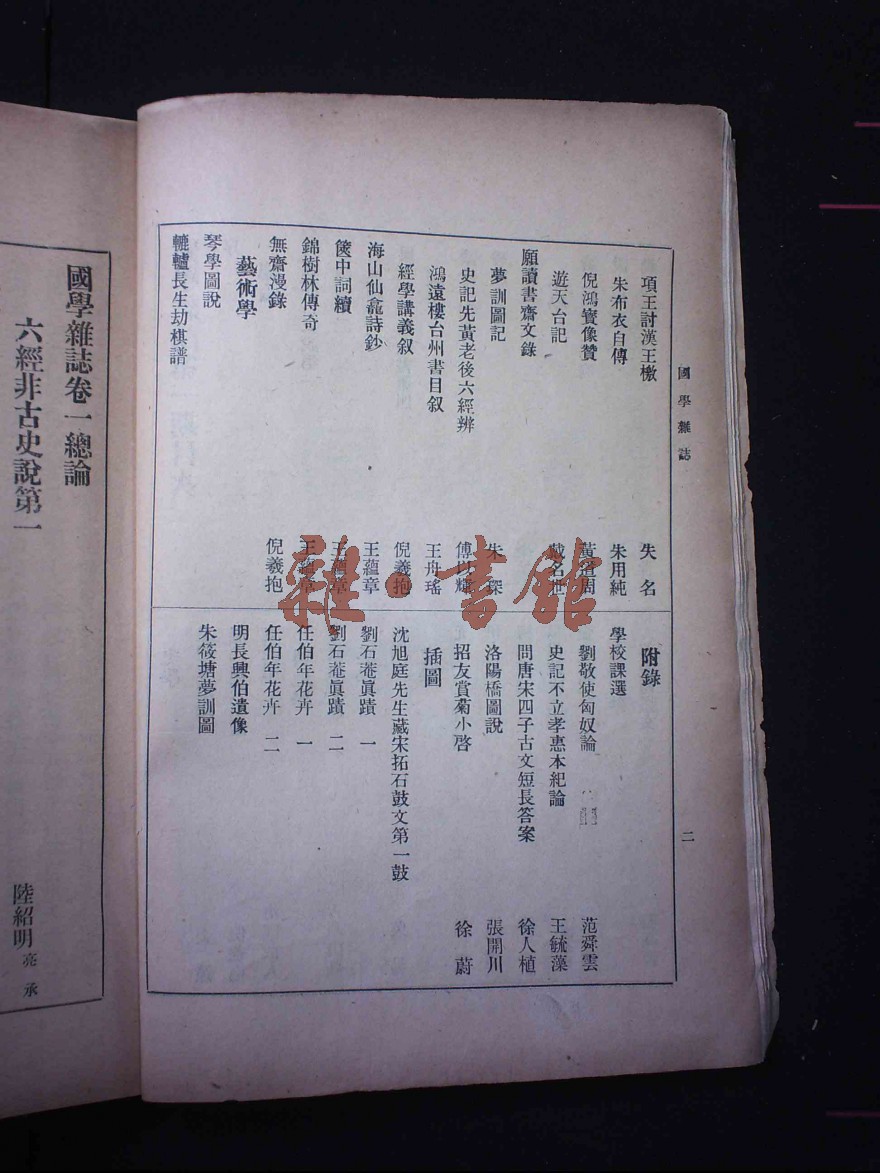 國學雜誌
二
項王討漢王檄 失名
朱布衣自傳 朱用純
倪鴻寶像贊 黃道周
遊天台記 戴名世
願讀書齋文錄
夢訓圖記 朱琛
史記先黃老後六經辨 傅以
鴻遠樓台州書目叙 王舟瑤
經學講義叙 倪羲抱
海山仙龕詩鈔 王蘊章
篋中詞續 王蘊章
錦樹林傳奇 王蘊章
無齋漫錄 倪羲抱
藝術學
琴學圖說
轆轤長生劫棋譜
附錄
學校課選
劉敬使匈奴論 范舜雲
史記不立孝惠本紀論 王毓藻
問唐宋四子古文短長答案 徐人植
洛陽橋圖說 張開川
招友賞菊小啓 徐蔚
插圖
沈旭庭先生藏宋拓石鼓文第一鼓
劉石菴眞蹟 一
劉石菴眞蹟 二
任伯年花卉 一
任伯年花卉 二
明長興伯遺像
朱筱塘夢訓圖
國學雜誌卷一總論
六經非古史說第一
陸紹明 亮承
雜·書館